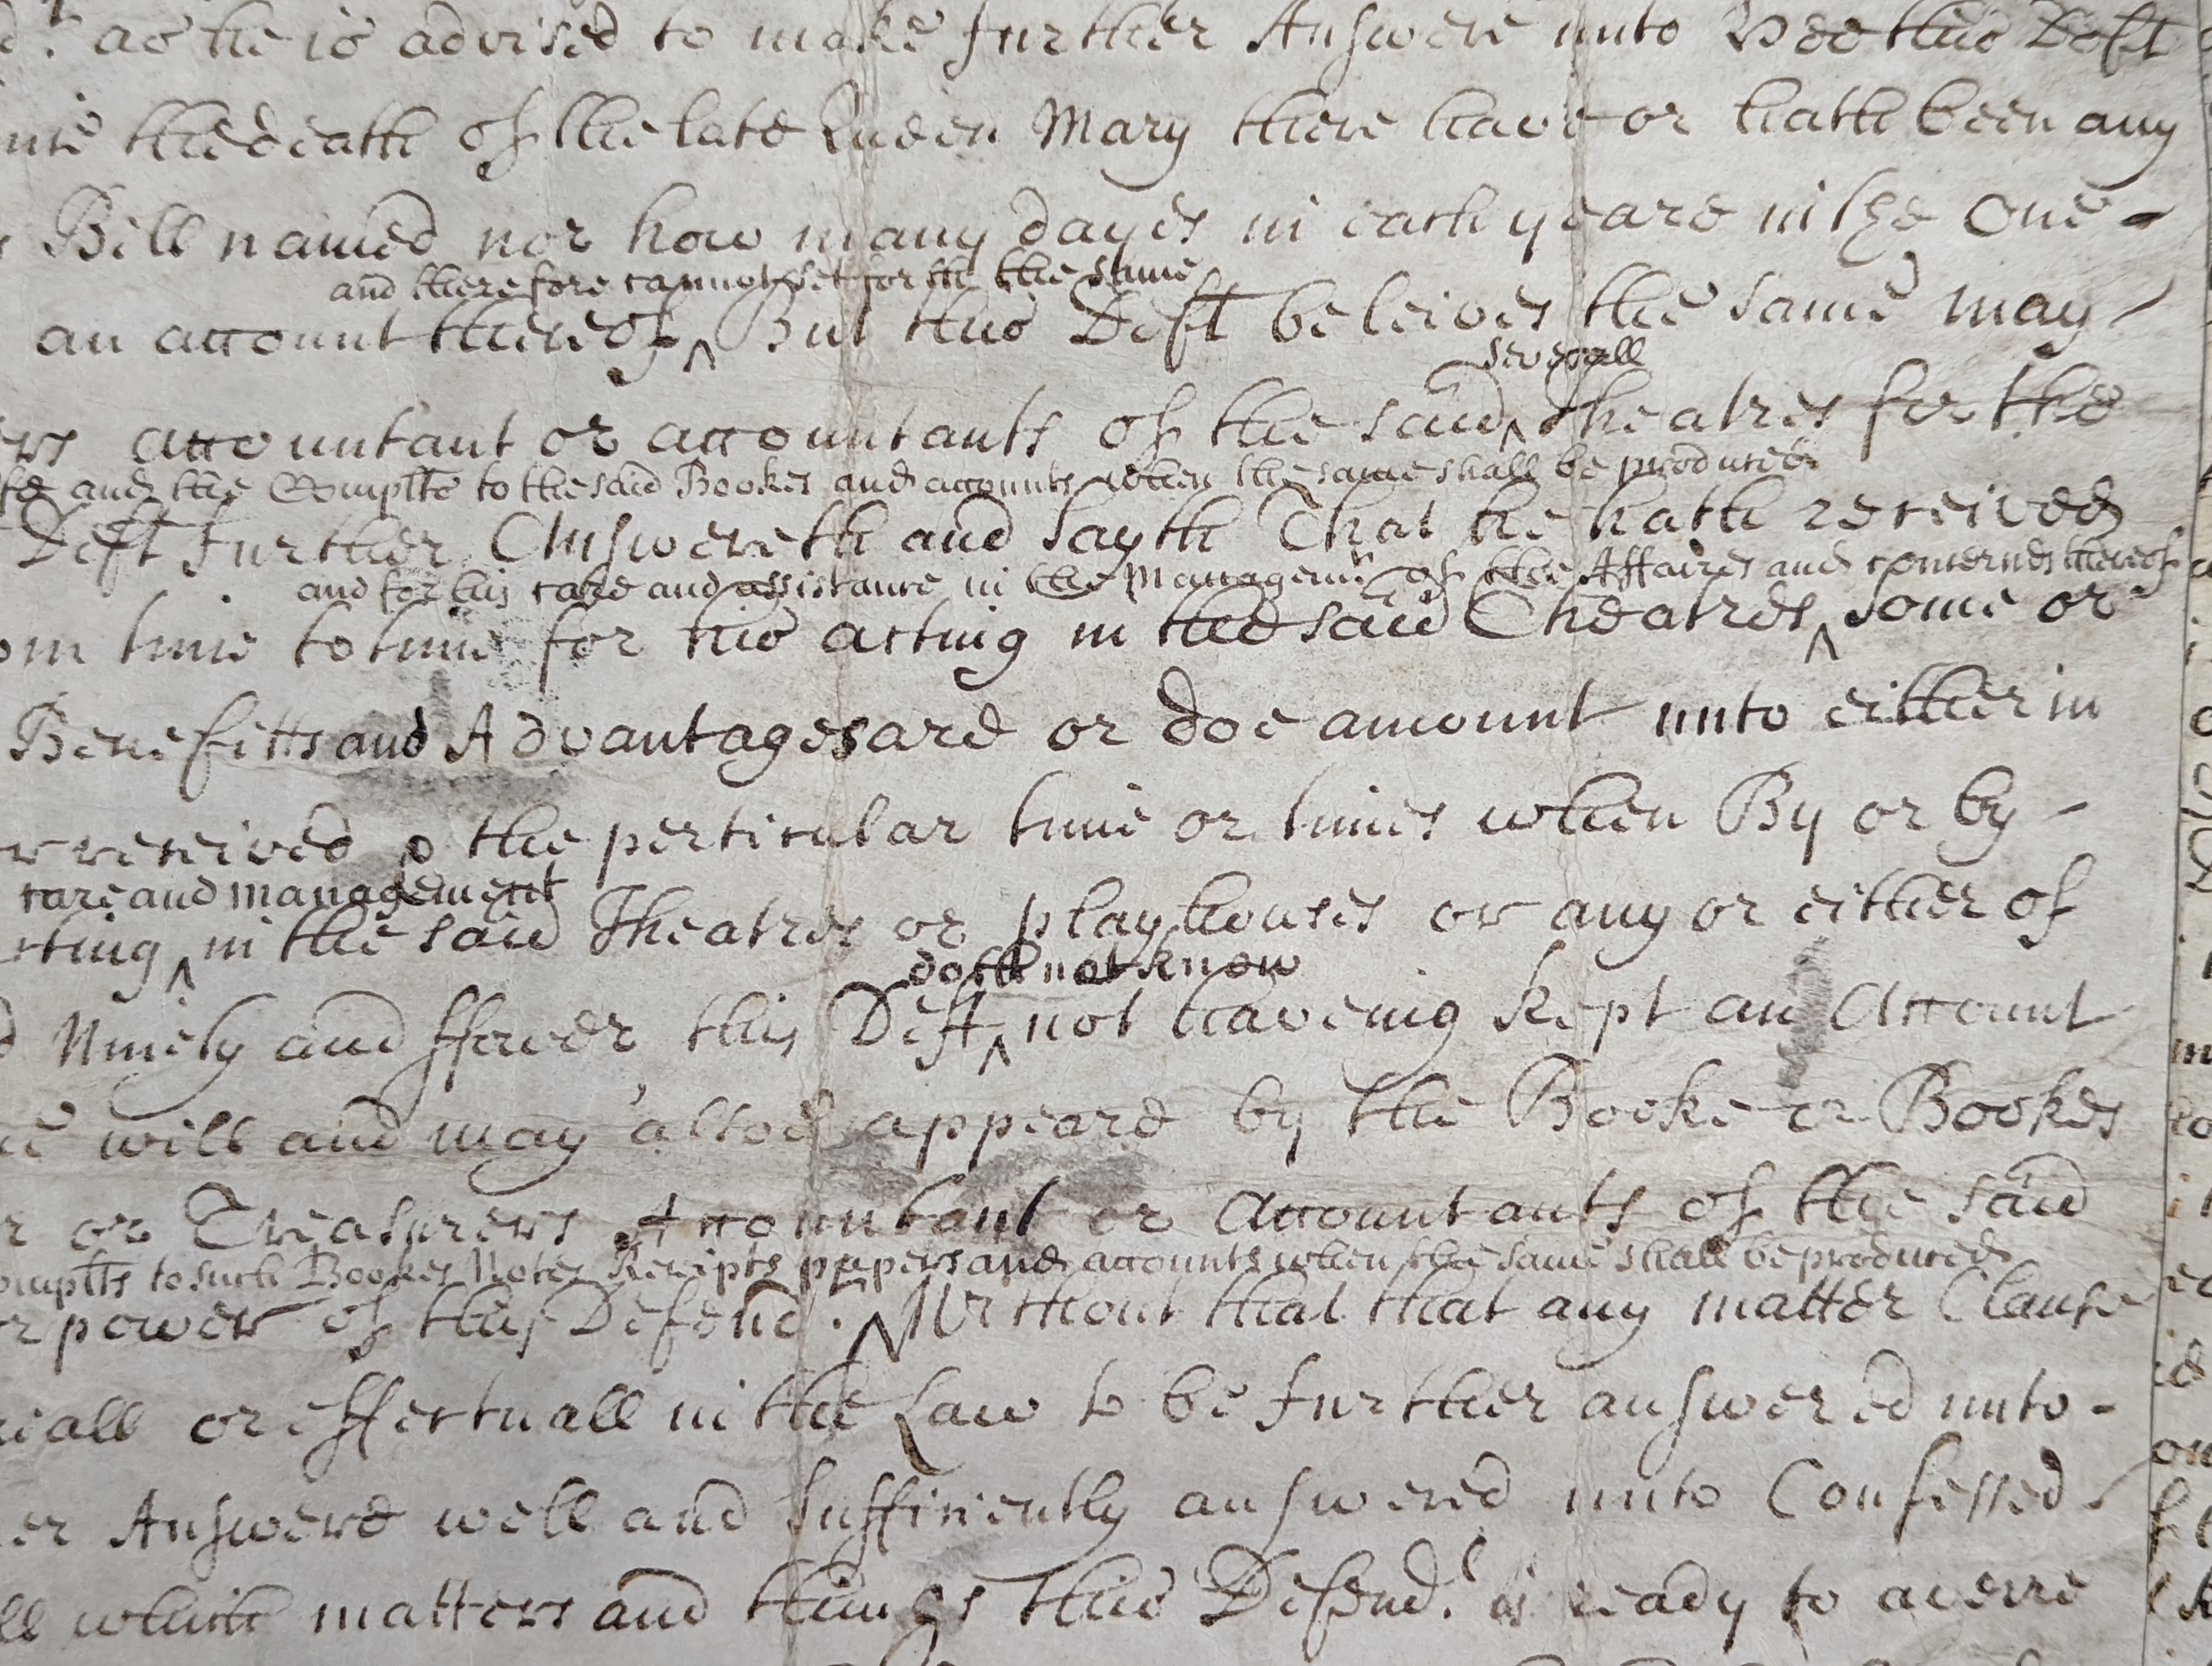 as he is advised to make further Answere unto Hee this Deft
the death of the late Queen Mary there have or hath been any
Bill named nor how many dayes in each yeare in the one -
and therefore cannot set forth the same
an account thereof ^ But this Deft beleives the same may
severall
accountant or accountants of the said ^ Theatres for the
and the Complts to the said Bookes and accounts when the same shall be produced
Deft further Answereth and sayth That he hath received
and for his care and assistance in the Managemt of the Affaires and concernes thereof
time to time for his acting in the said Theatres ^ some or
Benefitts and Advantages are or doe amount unto either in
received o the perticular time or times when By or by -
care and management
cting ^ in the said Theatres or playhouses or any or either of
doth not know
Ninety and ffower this Deft ^ not haveing kept an Account
will and may alsoe appeare by the Booke or Bookes
or Treasurers Accountant or Accountants of the said
omplts to such Bookes Notes Receipts papers and accounts when the same shall be produced
r power of this Defend.t ^ Without that that any matter Clause
iall or effectuall in the Law to be further answered unto -
er Answere well and sufficiently answered unto Confessed
ll which matters and things this Defend.t is ready to averre